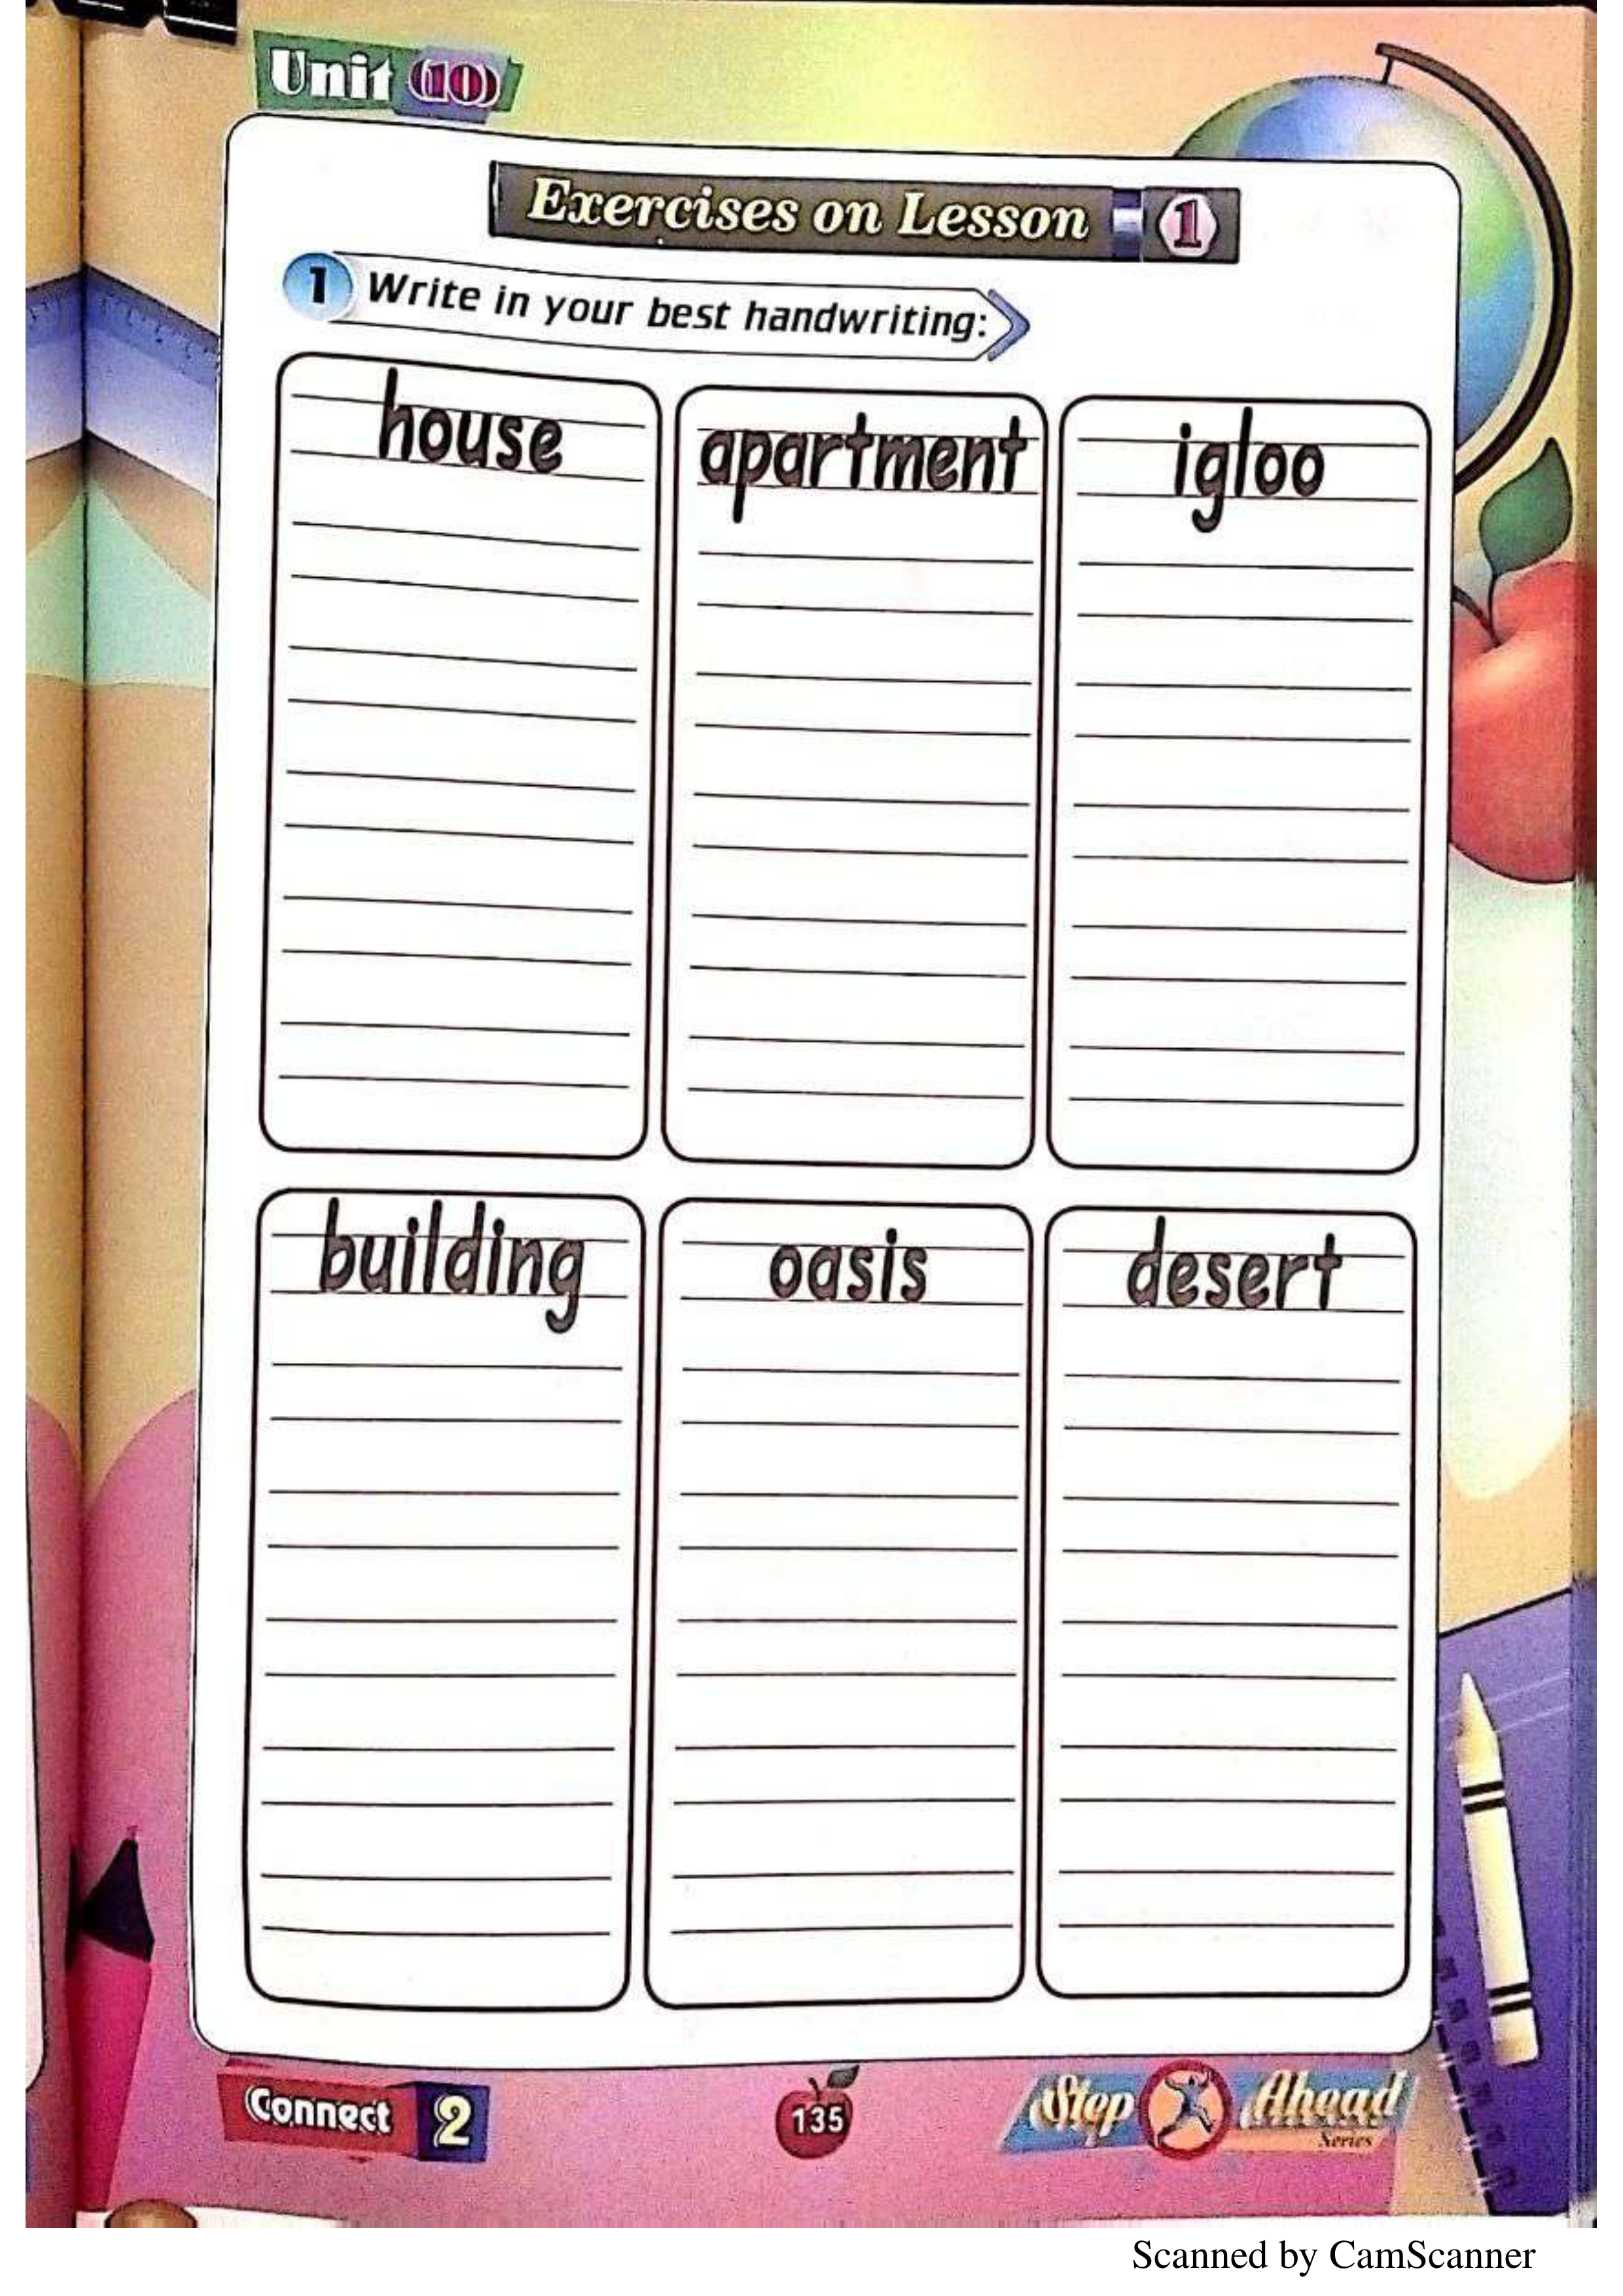 Unit (10)
Exercises on Lesson 1
1 Write in your best handwriting:
house apartment igloo
building oasis desert
Connect 2
135
Step Ahead
Series
Scanned by CamScanner